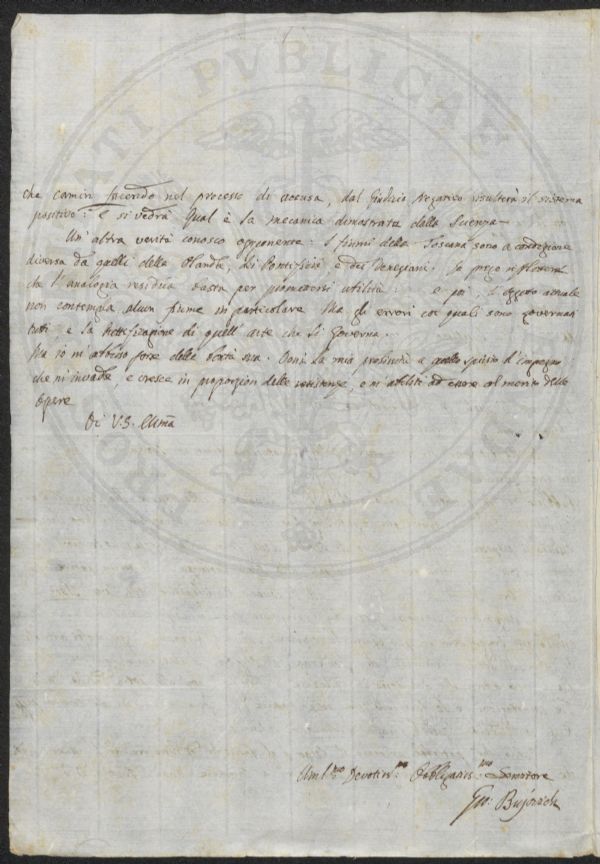 PRO VTILITATI PVBLICAE
che camin facendo nel processo di accusa, dal Giudizio Negativo risulterà il sistema
positivo: e si vedrà qual è la mecanica dimostrata dalla Scienza
Un' altra verità conosco opponente: I fiumi della Toscana sono a condizione
diversa da quelli della Olanda, di Pontifizii, e dei Veneziani. Io prego riflettere
che l' analogia residua basta per promettersi utilità: e poi, l' oggetto attuale
non contempla alcun fiume in particolare Ma gli errori coi quali sono governati
tutti e la rettificazione di quell' arte che li Governa.
Ma io m' abuso forse della bontà sua. Doni la mia e quello spirito d' impegno
che m' invade, e cresce in proporzion delle resistenze, e m' abiliti ad essere al merito delle
Opere
Di V.S. Illma
Uml.mo Devotis.mo Obbligatis.mo Servitore
Gio: Bujovich